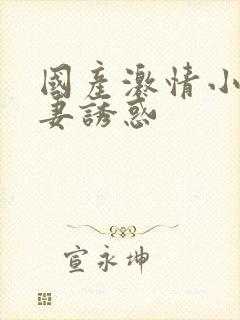 國產激情小
妻誘惑
宣永坤